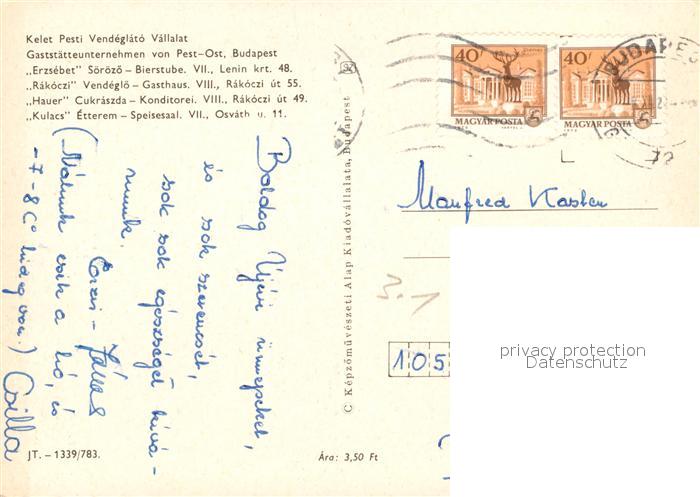 Kelet Pesti Vendéglátó Vállalat
Gaststätteunternehmen von Pest–Ost, Budapest
„Erzsébet” Söröző – Bierstube. VII., Lenin krt. 48.
„Rákóczi” Vendéglő – Gasthaus. VIII., Rákóczi út 55.
„Hauer” Cukrászda – Konditorei. VIII., Rákóczi út 49.
„Kulacs” Étterem – Speisesaal. VII., Osváth u. 11.
Boldog Újévi ünnepeket,
és sok szerencsét,
sok sok egészséget kívá-
nunk.
János
(Nálunk esik a hó, és
-7-8C° hideg van.) Csilla
JT. – 1339/783.
Ára: 3,50 Ft
C Képzőművészeti Alap Kiadóvállalata, Budapest
40f
MAGYAR POSTA
40f
MAGYAR POSTA
BUDAPES
72
Manfred Kasten
3.1
105
privacy protection
Datenschutz